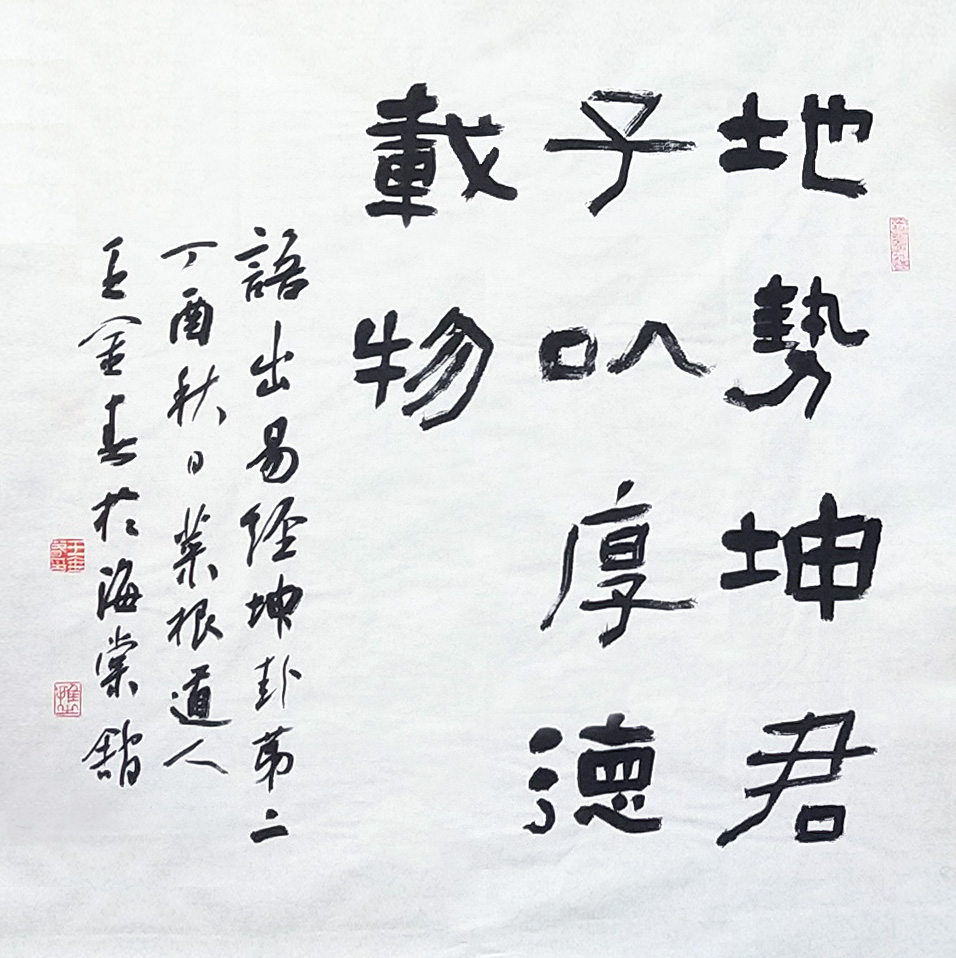 地勢坤君
子以厚德
載物
語出易经坤卦第二
丁酉秋日菜根道人
王金春於海棠館